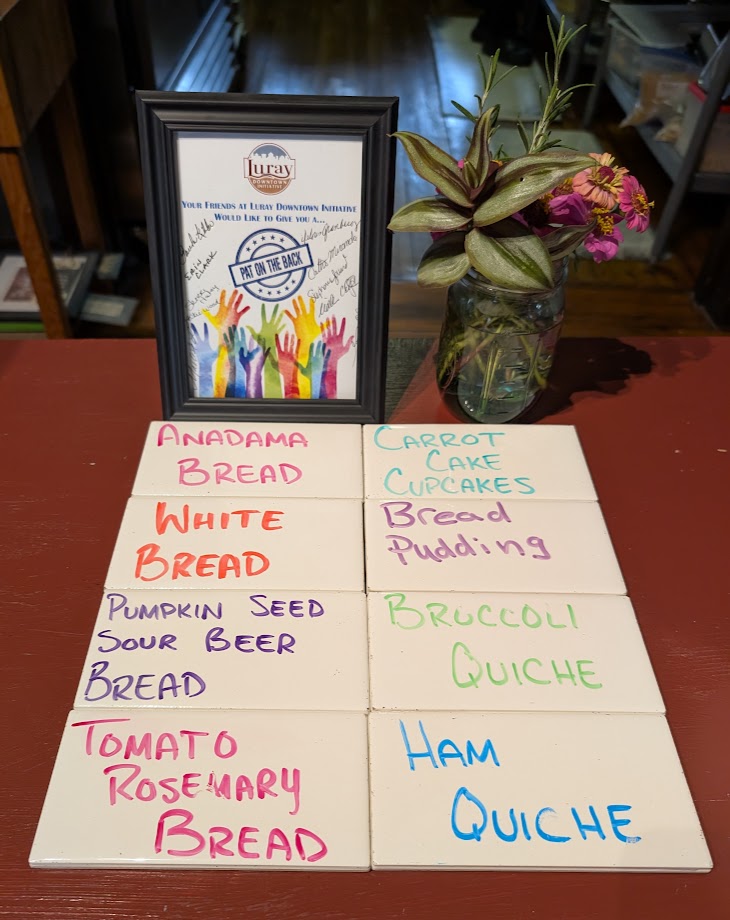 Luray
DOWNTOWN
INITIATIVE
YOUR FRIENDS AT LURAY DOWNTOWN INITIATIVE
WOULD LIKE TO GIVE YOU A...
PAT ON THE BACK
ANADAMA
BREAD
CARROT
CAKE
CUPCAKES
WHITE
BREAD
Bread
Pudding
PUMPKIN SEED
SOUR BEER
BREAD
BRUCCOLI
QUICHE
TOMATO
ROSEMARY
BREAD
HAM
QUICHE